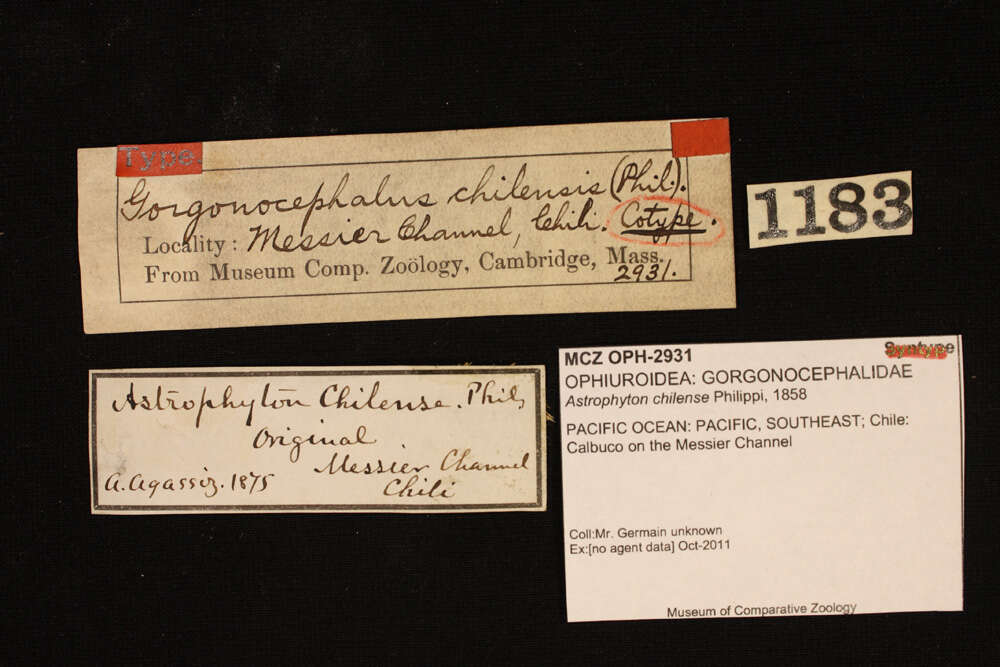 Type.
Gorgonocephalus chilensis (Phil.).
Locality: Messier Channel, Chili. Cotype.
From Museum Comp. Zoölogy, Cambridge, Mass.
2931.
1183
Astrophyton Chilense. Phil,
Original
Messier Channel
A. Agassiz. 1875 Chili
MCZ OPH-2931 Syntype
OPHIUROIDEA: GORGONOCEPHALIDAE
Astrophyton chilense Philippi, 1858
PACIFIC OCEAN: PACIFIC, SOUTHEAST; Chile:
Calbuco on the Messier Channel
Coll:Mr. Germain unknown
Ex:[no agent data] Oct-2011
Museum of Comparative Zoology